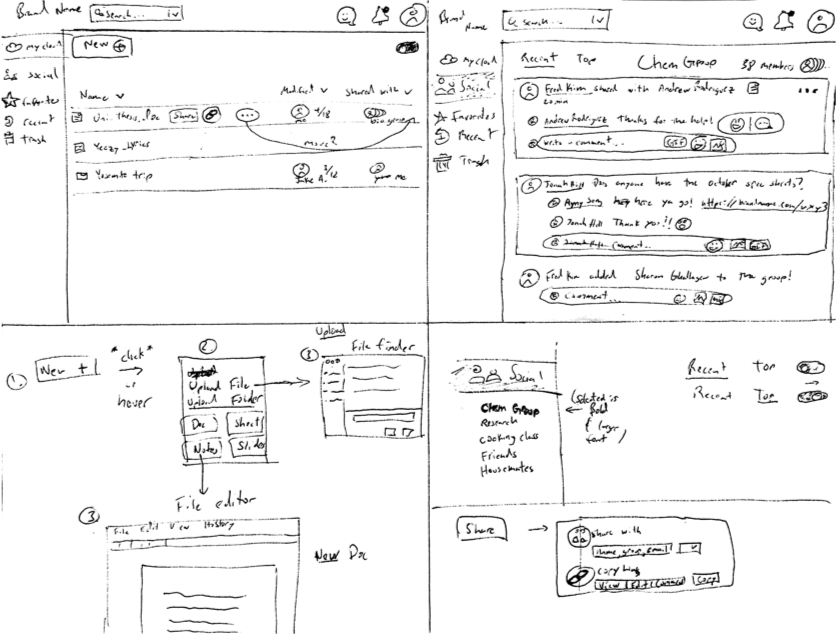 Brand Name
Search...
my cloud
New +
social
favorites
recent
Trash
Name
Modified
Shared with
Uni_Thesis_Doc
Share
me
4/18
bio group
more?
Yeezy_Lyrics
Yosemite trip
Luke A.
3/12
you me
Brand Name
Search...
my cloud
Social
Favorites
Recent
Trash
Recent
Top
Chem Group
38 members
Fred Kim shared with Andrew Rodriguez
20 min
Andrew Rodriguez Thanks for the help!
write a comment...
GIF
Jonah Hill Does anyone have the october spec sheets?
song here ya go!
Jonah Hill Thank you!!
comment...
Fred Kim added Sharon Gallagher to the group!
comment...
1.
New +
*click*
or
hover
2
Upload File
Upload Folder
Doc
Sheet
Notes
Slides
3
Upload
File finder
3
File editor
File Edit View History
New Doc
Social
Chem Group
Research
cooking class
Friends
Housemates
(Selected is
bold
& larger
font)
Recent
Top
Recent
Top
Share
share with
name, group, email
copy link
View | Edit | Comment
Copy